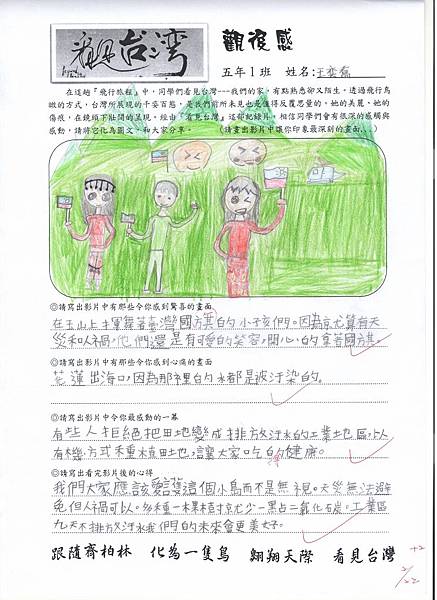 看見台灣
觀後感
五年1班 姓名:王奕喬
在這趟『飛行旅程』中,同學們看見台灣---我們的家,有點熟悉卻又陌生,透過飛行鳥
瞰的方式,台灣所展現的千姿百態,是我們前所未見也是值得反覆思量的。她的美麗,她的
傷痕,在鏡頭下壯闊的呈現。經由『看見台灣』這部紀錄片,相信同學們會有很深的感觸與
感動,請將它化為圖文,和大家分享。 (請畫出影片中讓你印象最深刻的畫面...)
◎請寫出影片中有那些令你感到驚喜的畫面
在玉山上揮舞著臺灣國旗的小孩們。因為京尤算有天
災和人禍,他們還是有可愛的笑容,開心的拿著國旗。
◎請寫出影片中有那些令你感到心痛的畫面
花蓮出海口,因為那裡的水都是被汙染的。
◎請寫出影片中令你最感動的一幕
有些人拒絕把田地變成排放汙水的工業地區,以
有機方式種植田地,讓大家吃的健康。
◎請寫出看完影片後的心得
我們大家應該愛護這個小島而不是無視。天災無法避
免但人禍可以。多種一棵樹京尤少一點占二氧化石炭。工業區
九天不排放汙水我們的未來會更美好。
跟隨齊柏林 化為一隻鳥 翱翔天際 看見台灣
+2
2/22